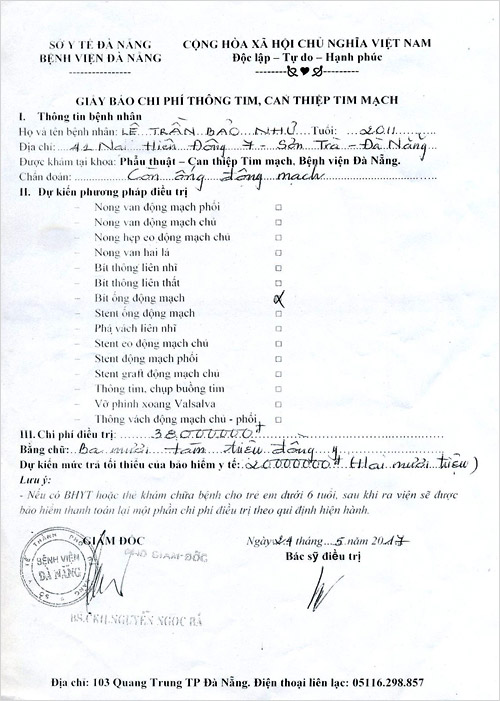 SỞ Y TẾ ĐÀ NẴNG
BỆNH VIỆN ĐÀ NẴNG
CỘNG HÒA XÃ HỘI CHỦ NGHĨA VIỆT NAM
Độc lập – Tự do – Hạnh phúc
GIẤY BÁO CHI PHÍ THÔNG TIM, CAN THIỆP TIM MẠCH
I. Thông tin bệnh nhân
Họ và tên bệnh nhân: LÊ TRẦN BẢO NHƯ Tuổi: 2011
Địa chỉ: 42 Nại Hiên Đông 7 - Sơn Trà - Đà Nẵng
Được khám tại khoa: Phẫu thuật – Can thiệp Tim mạch, Bệnh viện Đà Nẵng.
Chẩn đoán: Còn ống động mạch
II. Dự kiến phương pháp điều trị
– Nong van động mạch phổi □
– Nong van động mạch chủ □
– Nong hẹp eo động mạch chủ □
– Nong van hai lá □
– Bít thông liên nhĩ □
– Bít thông liên thất □
– Bít ống động mạch
– Stent ống động mạch □
– Phá vách liên nhĩ □
– Stent eo động mạch chủ □
– Stent động mạch phổi □
– Stent graft động mạch chủ □
– Thông tim, chụp buồng tim □
– Vỡ phình xoang Valsalva □
– Thông vách động mạch chủ - phổi □
III. Chi phí điều trị: 38.000.000đ
Bằng chữ: Ba mươi tám triệu đồng y
Dự kiến mức trả tối thiểu của bảo hiểm y tế: 20.000.000đ (Hai mươi triệu)
Lưu ý:
- Nếu có BHYT hoặc thẻ khám chữa bệnh cho trẻ em dưới 6 tuổi, sau khi ra viện sẽ được
bảo hiểm thanh toán lại một phần chi phí điều trị theo qui định hiện hành.
GIÁM ĐỐC
Ngày 29 tháng 5 năm 2017
PHÓ GIÁM ĐỐC
Bác sỹ điều trị
BỆNH VIỆN
ĐÀ NẴNG
BS.CKII.NGUYỄN NGỌC BÁ
Địa chỉ: 103 Quang Trung TP Đà Nẵng. Điện thoại liên lạc: 05116.298.857